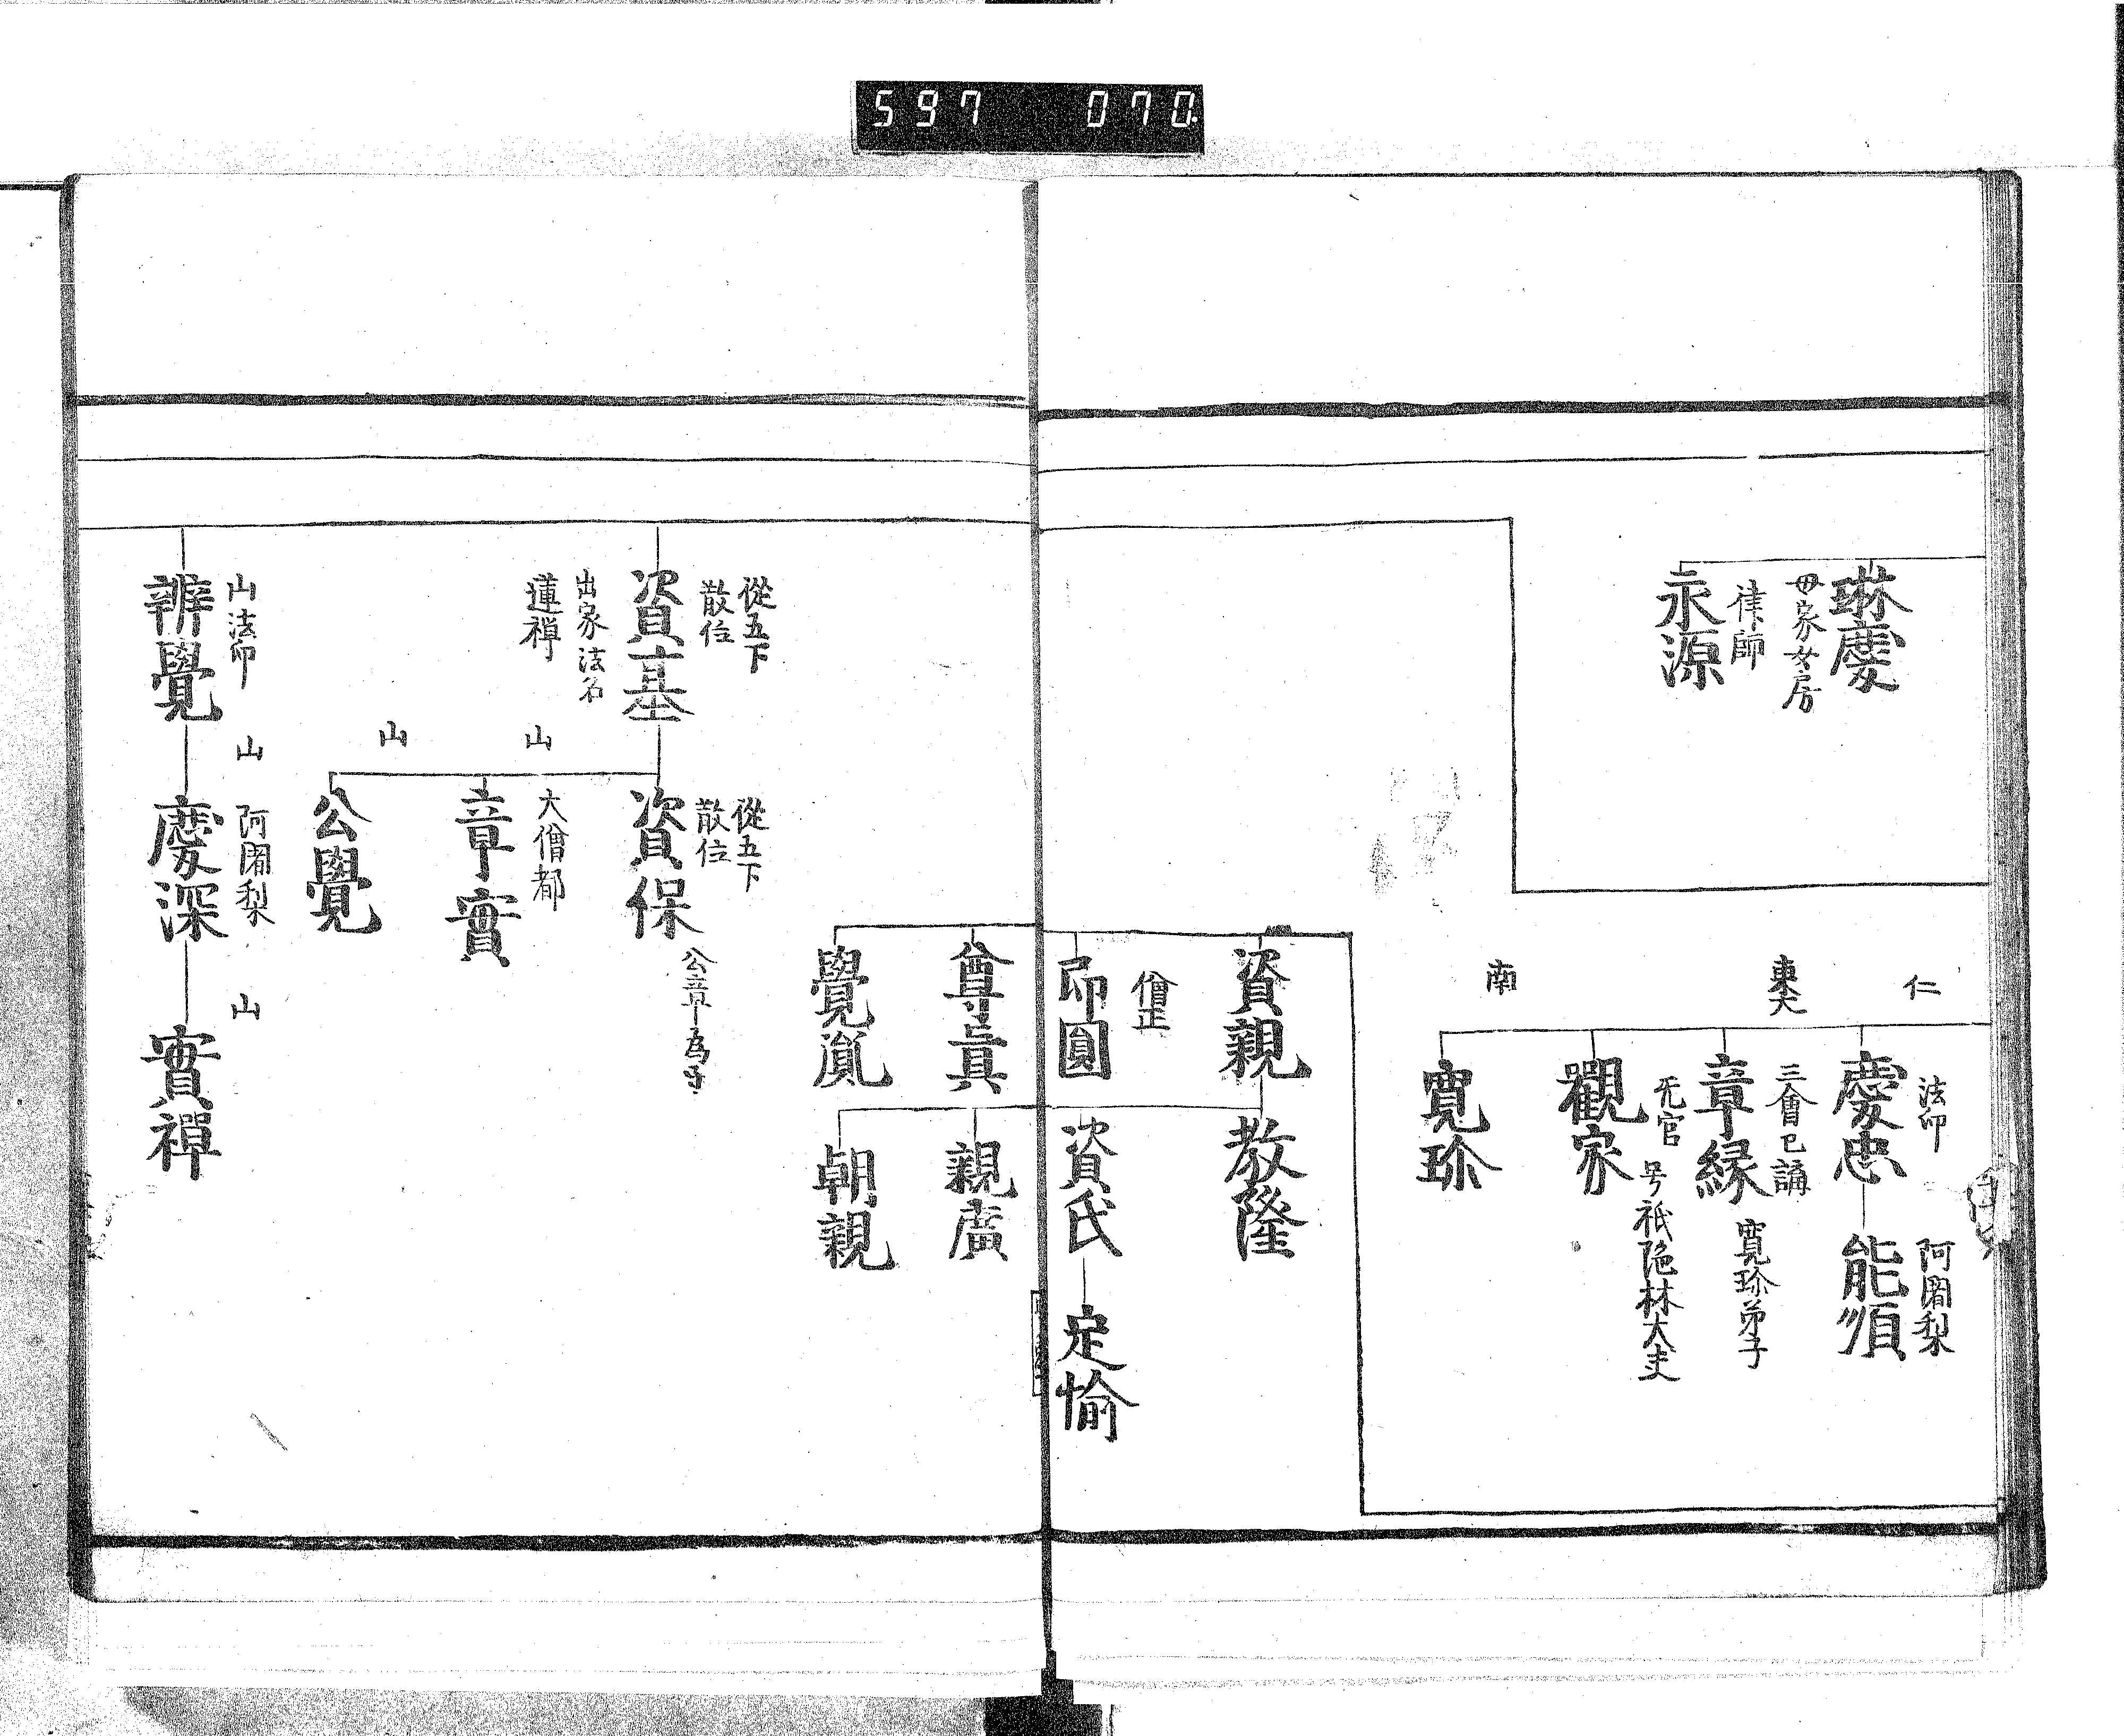 597 070
琳慶
母家女房
律師
永源
仁
法印
慶忠
阿闍梨
能順
東大
三會已講
章縁
寛珍弟子
无官
号祇陀林大夫
觀家
南
寛珍
資親
教隆
僧正
印圓
資氏
定愉
尊眞
親廣
覺胤
朝親
從五下
散位
資基
出家法名
蓮禅
從五下
散位
資保
公章為子
山
大僧都
章實
山
公覺
山法印
辨覺
山
阿闍梨
慶深
山
實禪